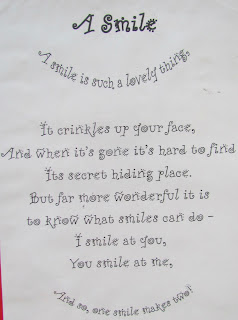 A Smile
A smile is such a lovely thing,
It crinkles up your face,
And when it's gone it's hard to find
Its secret hiding place.
But far more wonderful it is
to know what smiles can do -
I smile at you,
You smile at me,
And so, one smile makes two!